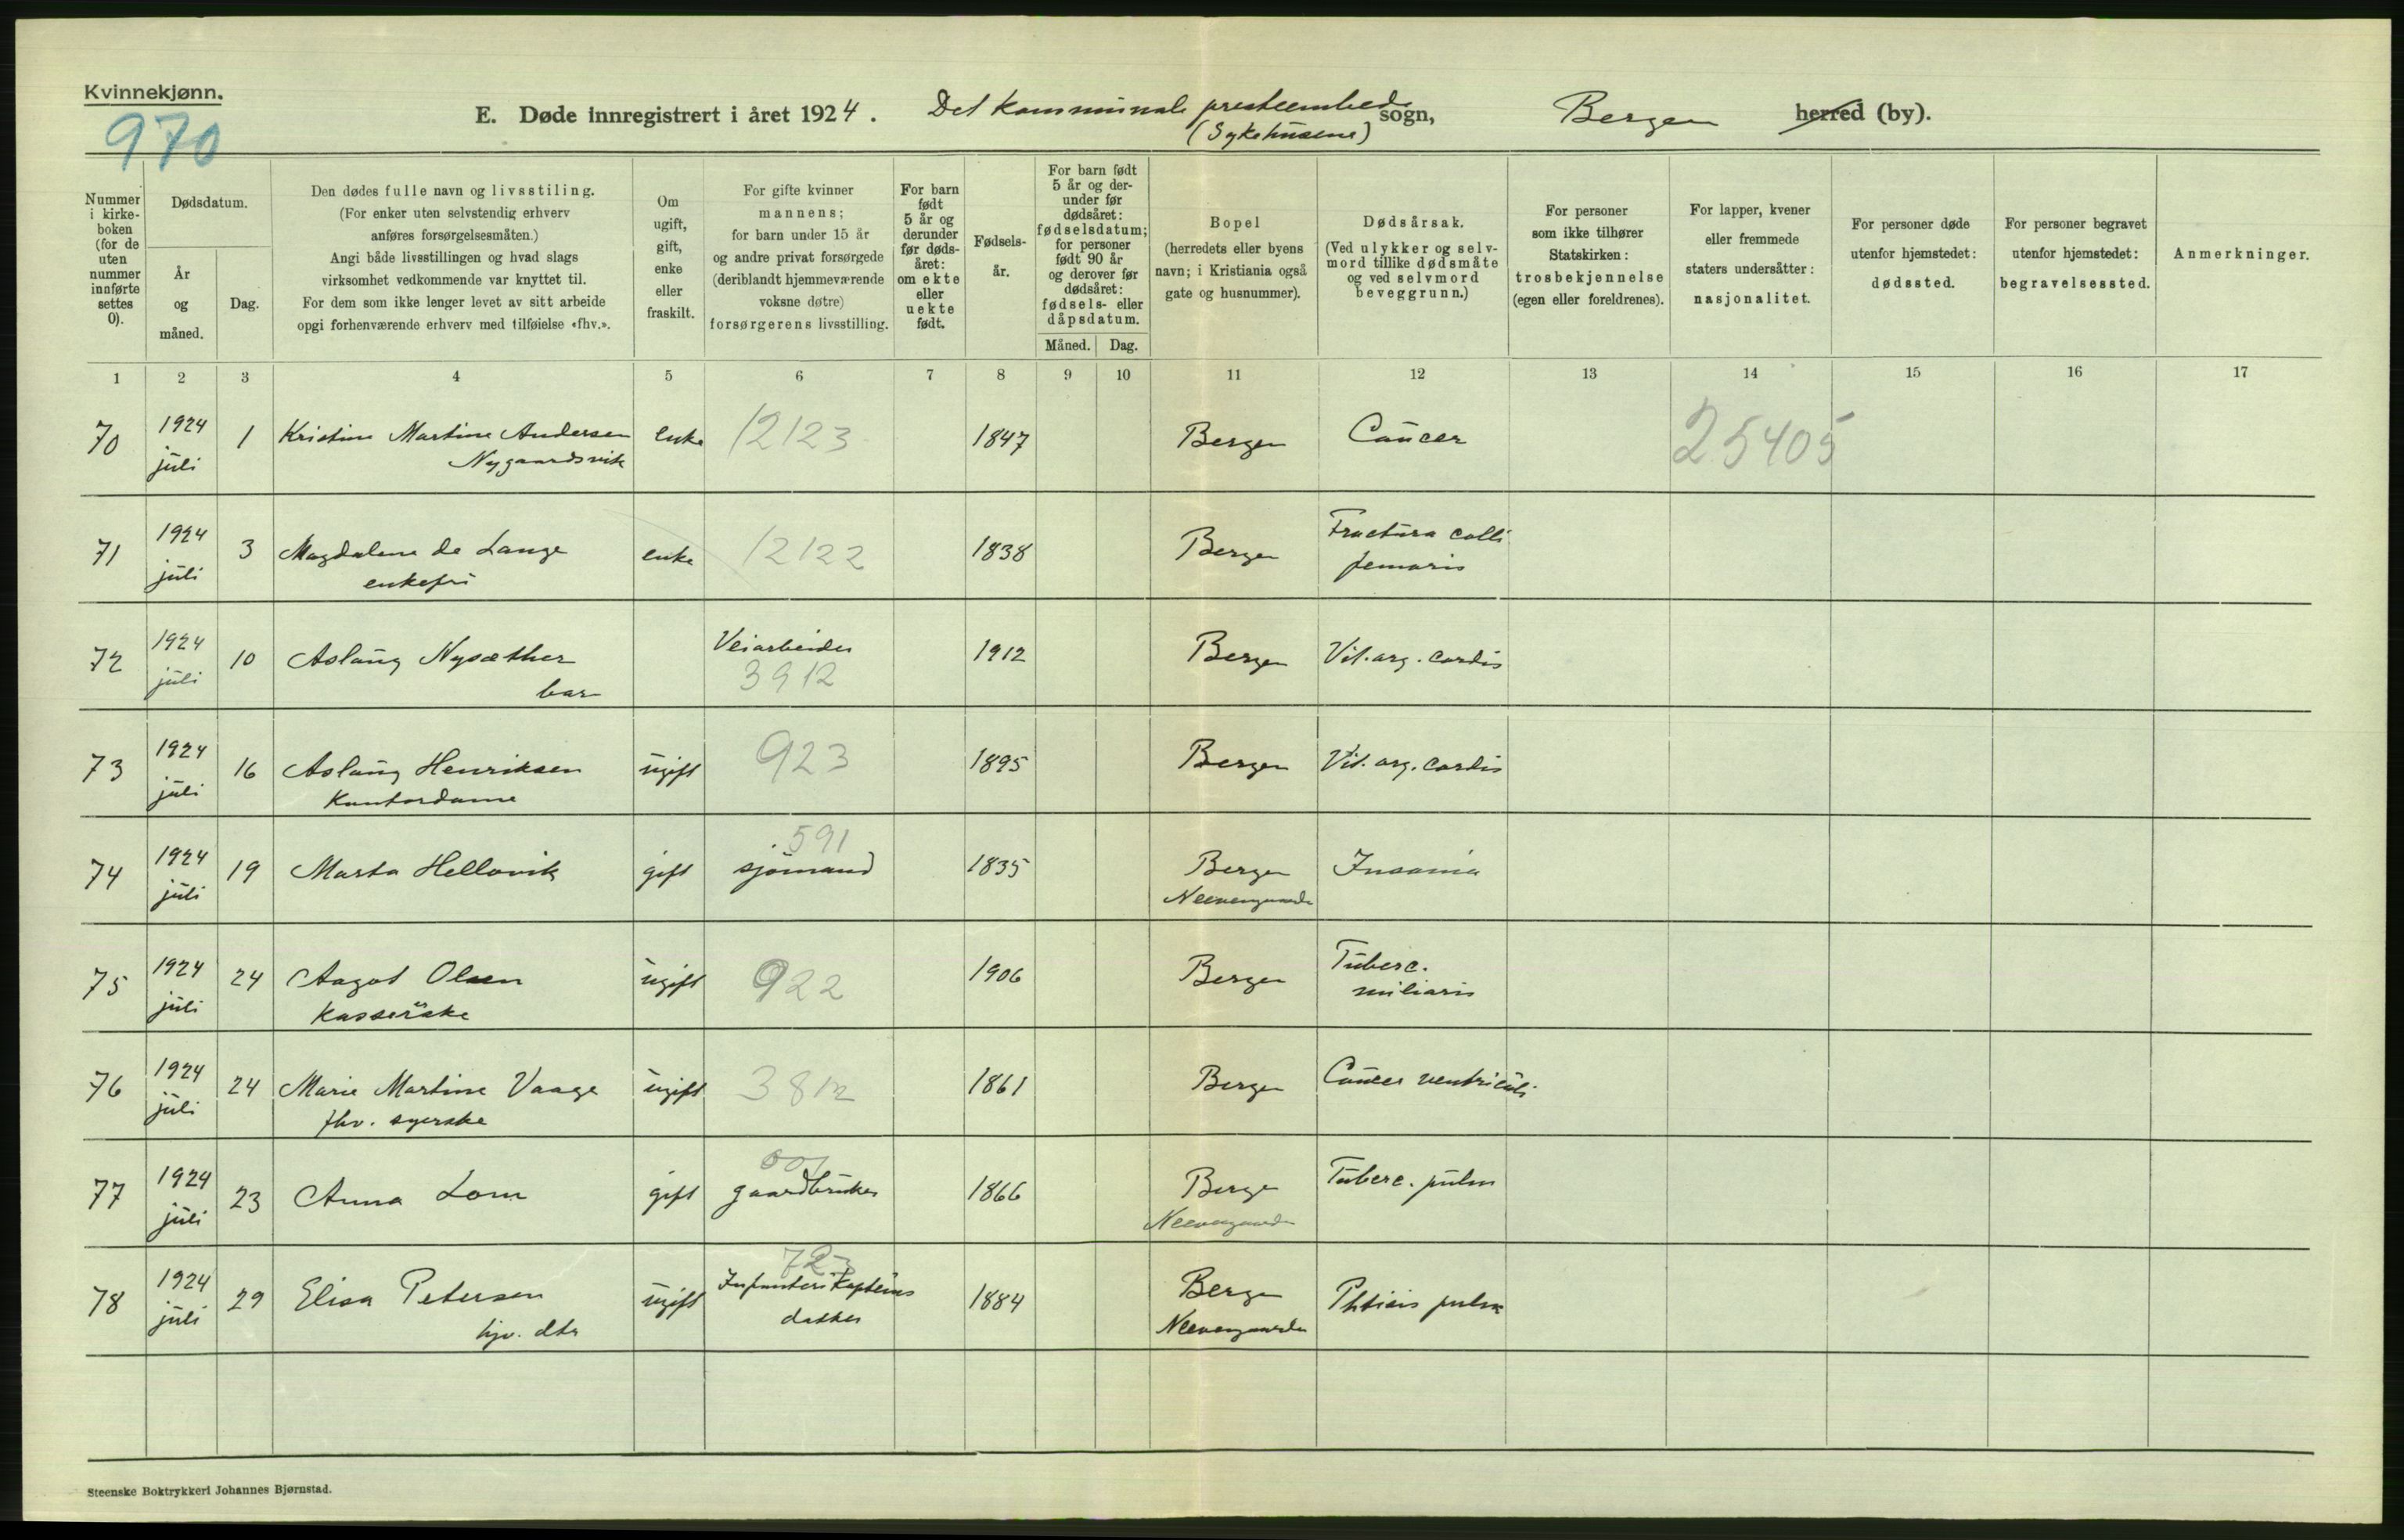 Kvinnekjønn.
970
E. Døde innregistrert i året 1924. Det kommunale presteembede sogn, Bergen herred (by).
(Sykehusene)
Nummer i kirkeboken (for de uten nummer innførte settes 0).
Dødsdatum.
År og måned.
Dag.
Den dødes fulle navn og livsstiling.
(For enker uten selvstendig erhverv
anføres forsørgelsesmåten.)
Angi både livsstillingen og hvad slags
virksomhet vedkommende var knyttet til.
For dem som ikke lenger levet av sitt arbeide
opgi forhenværende erhverv med tilføielse «fhv.».
Om ugift, gift, enke eller fraskilt.
For gifte kvinner
mannens;
for barn under 15 år
og andre privat forsørgede
(deriblandt hjemmeværende
voksne døtre)
forsørgerens livsstilling.
For barn født 5 år og derunder før dødsåret: om ekte eller uekte født.
Fødselsår.
For barn født 5 år og derunder før dødsåret: fødselsdatum; for personer født 90 år og derover før dødsåret: fødsels- eller dåpsdatum.
Måned.
Dag.
Bopel
(herredets eller byens
navn; i Kristiania også
gate og husnummer).
Dødsårsak.
(Ved ulykker og selvmord tillike dødsmåte
og ved selvmord
beveggrunn.)
For personer
som ikke tilhører
Statskirken:
trosbekjennelse
(egen eller foreldrenes).
For lapper, kvener
eller fremmede
staters undersåtter:
nasjonalitet.
For personer døde
utenfor hjemstedet:
dødssted.
For personer begravet
utenfor hjemstedet:
begravelsessted.
Anmerkninger.
1 2 3 4 5 6 7 8 9 10 11 12 13 14 15 16 17
70 1924 juli 1 Kristine Martine Andersen Nygaardsvik enke 12123 1847 Bergen Cancer 25405
71 1924 juli 3 Magdalene de Lange enkefru enke 12122 1838 Bergen Fractura colli femoris
72 1924 juli 10 Aslaug Nysæther barn Veiarbeider 3912 1912 Bergen Vit. org. cordis
73 1924 juli 16 Aslaug Henriksen Kontordame ugift 923 1895 Bergen Vit. org. cordis
74 1924 juli 19 Marta Hellovik gift 591 sjömand 1835 Bergen Neevengaarden Insania
75 1924 juli 24 Aagot Olsen Kassererske ugift 922 1906 Bergen Tuberc. miliaris
76 1924 juli 24 Marie Martine Vaage fhv. syerske ugift 3812 1861 Bergen Cancer ventriculi
77 1924 juli 23 Anna Lom gift gaardbruker 1866 Bergen Neevengaarden Tuberc. pulm
78 1924 juli 29 Elisa Petersen hjv. dtr ugift Infanterikapteins datter 1884 Bergen Neevengaarden Phtisis pulm
Steenske Boktrykkeri Johannes Bjørnstad.